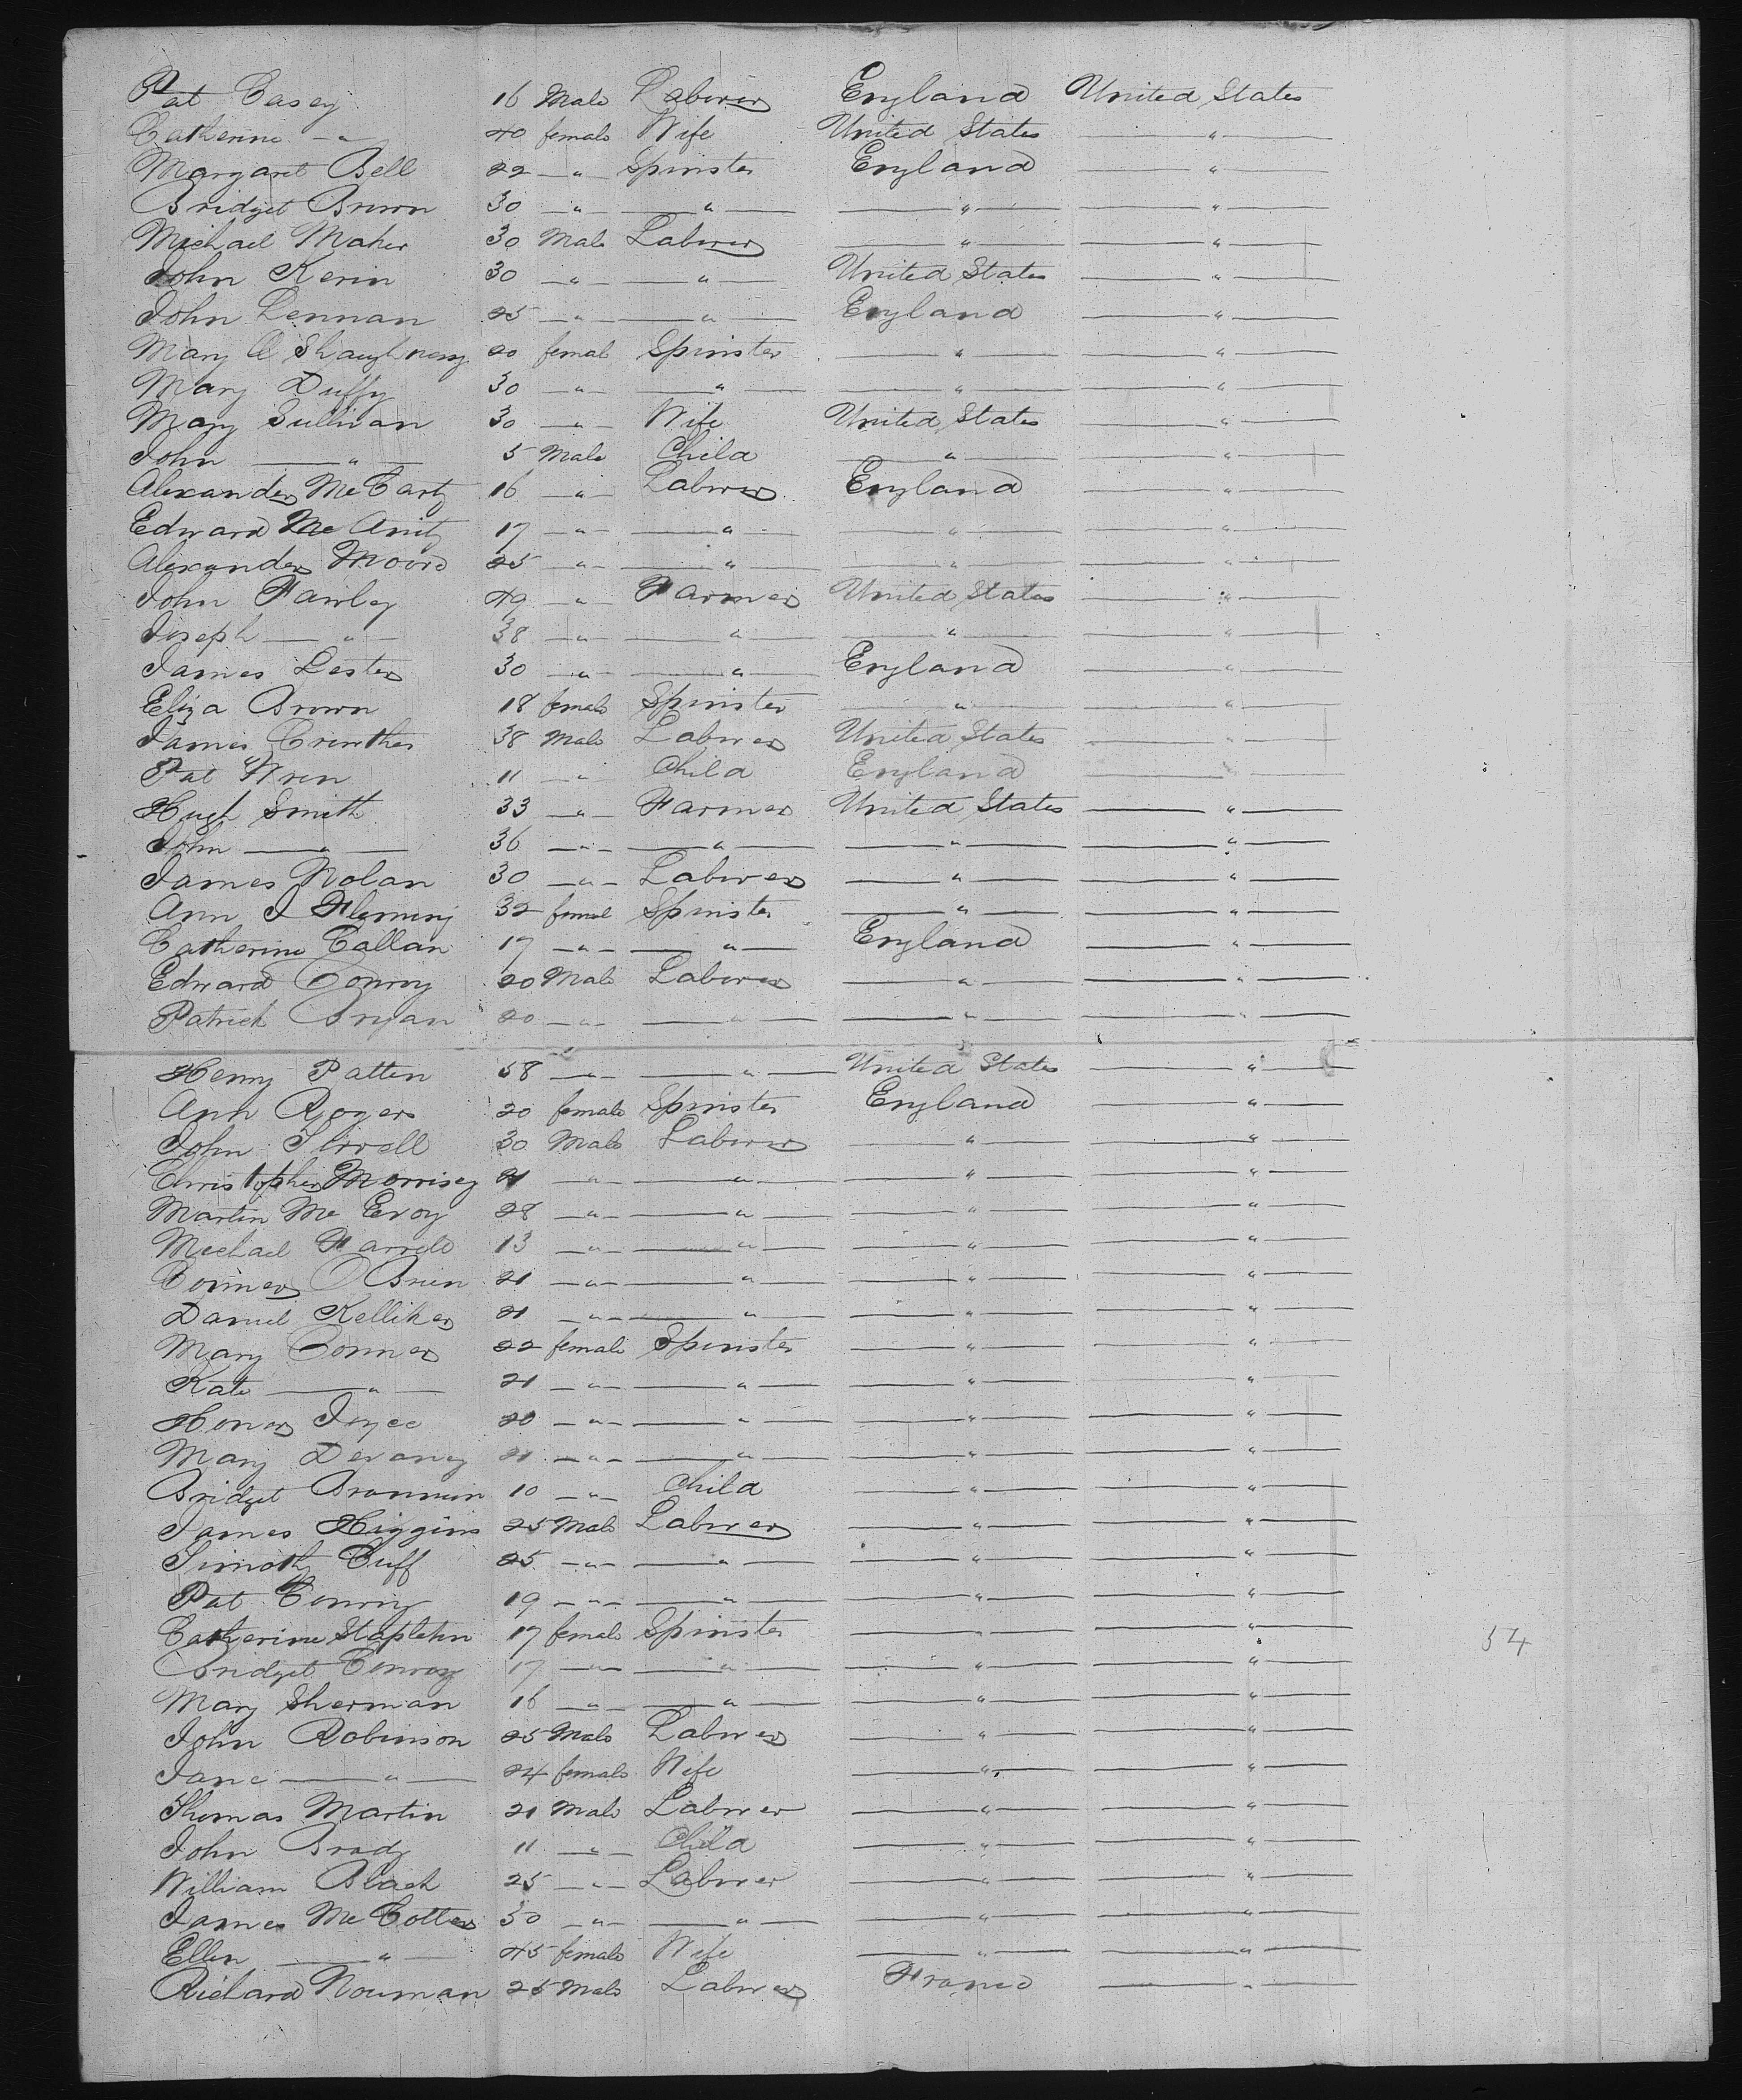 Pat Casey 16 Male Laborer England United States
Catherine —"— 40 female Wife United States —"—
Margaret Bell 22 —"— Spinster England —"—
Bridget Brown 30 —"— —"— —"— —"—
Michael Maher 30 Male Laborer —"— —"—
John Kerin 30 —"— —"— United States —"—
John Lennan 25 —"— —"— England —"—
Mary O Shaughnessy 20 female Spinster —"— —"—
Mary Duffy 30 —"— —"— —"— —"—
Mary Sullivan 30 —"— Wife United States —"—
John —"— 5 Male Child —"— —"—
Alexander McCarty 16 —"— Laborer England —"—
Edward Mc 17 —"— —"— —"— —"—
Alexander Moore 25 —"— —"— —"— —"—
John Fawley 49 —"— Farmer United States —"—
Joseph —"— 38 —"— —"— —"— —"—
James Lester 30 —"— —"— England —"—
Eliza Brown 18 female Spinster —"— —"—
James Crowther 38 Male Laborer United States —"—
Pat Wren 11 —"— Child England —"—
Hugh Smith 33 —"— Farmer United States —"—
John —"— 36 —"— —"— —"— —"—
James Nolan 30 —"— Laborer —"— —"—
Ann J Fleming 32 female Spinster —"— —"—
Catherine Callan 17 —"— —"— England —"—
Edward Conroy 20 Male Laborer —"— —"—
Patrick Bryan 20 —"— —"— —"— —"—
Henry Patten 58 —"— —"— United States —"—
Ann Rogers 20 female Spinster England —"—
John Tirrell 30 Male Laborer —"— —"—
Christopher Morrisey 21 —"— —"— —"— —"—
Martin Mc Evoy 28 —"— —"— —"— —"—
Michael Farrell 13 —"— —"— —"— —"—
Conner O Brien 21 —"— —"— —"— —"—
Daniel Kelliher 21 —"— —"— —"— —"—
Mary Conner 22 female Spinster —"— —"—
Kate —"— 21 —"— —"— —"— —"—
Honor Joyce 20 —"— —"— —"— —"—
Mary Devaney 21 —"— —"— —"— —"—
Bridget Brannin 10 —"— Child —"— —"—
James Higgins 25 Male Laborer —"— —"—
Timothy Cuff 25 —"— —"— —"— —"—
Pat Conroy 19 —"— —"— —"— —"—
Catherine Stapleton 17 female Spinster —"— —"—
54
Bridget Conroy 17 —"— —"— —"— —"—
Mary Sherman 16 —"— —"— —"— —"—
John Robinson 25 Male Laborer —"— —"—
Jane —"— 24 female Wife —"— —"—
Thomas Martin 21 Male Laborer —"— —"—
John Brady 11 —"— Child —"— —"—
William Black 25 —"— Laborer —"— —"—
James Mc Cotter 30 —"— —"— —"— —"—
Ellen —"— 45 female Wife —"— —"—
Richard Nouman 25 Male Laborer France —"—